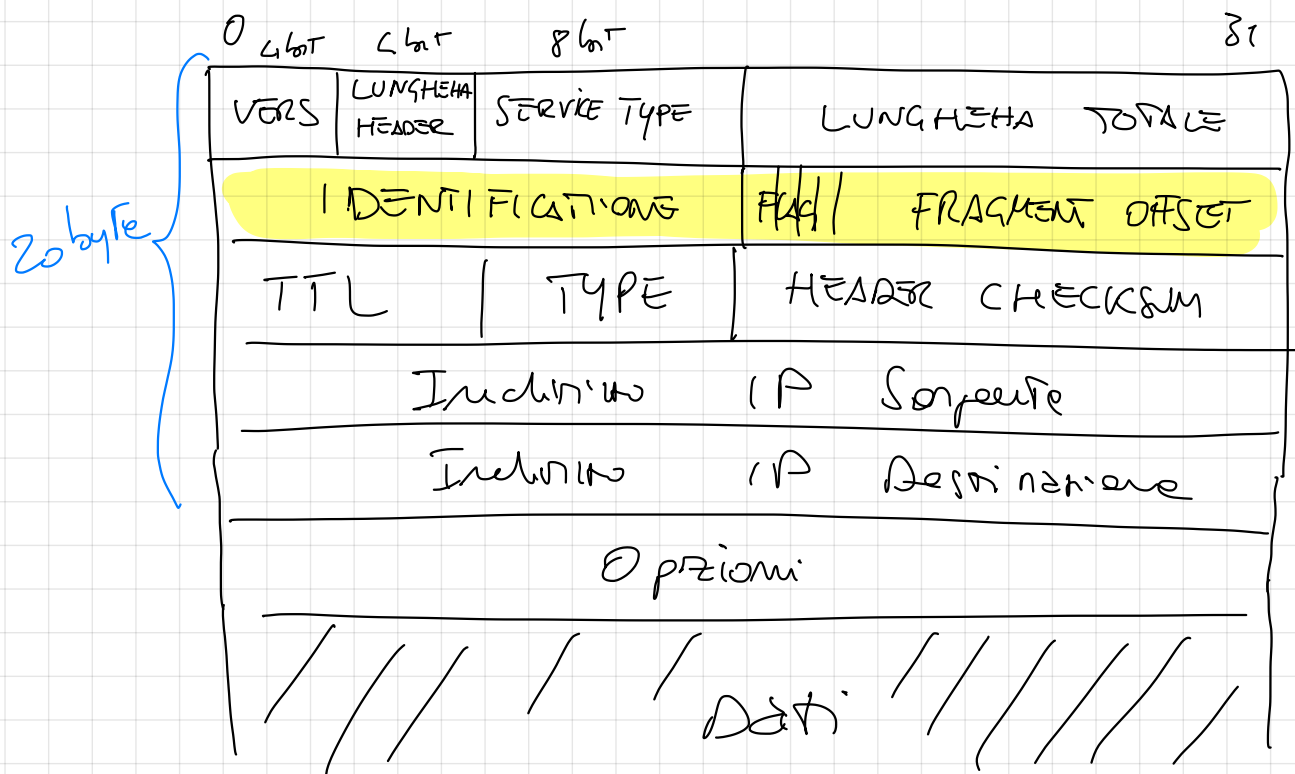 0 4 bit 4 bit 8 bit 31
VERS LUNGHEZZA HEADER SERVICE TYPE LUNGHEZZA TOTALE
20 byte
IDENTIFICATIONE FLAG FRAGMENT OFFSET
TTL TYPE HEADER CHECKSUM
Indirizzo IP Sorgente
Indirizzo IP Destinazione
Opzioni
Dati